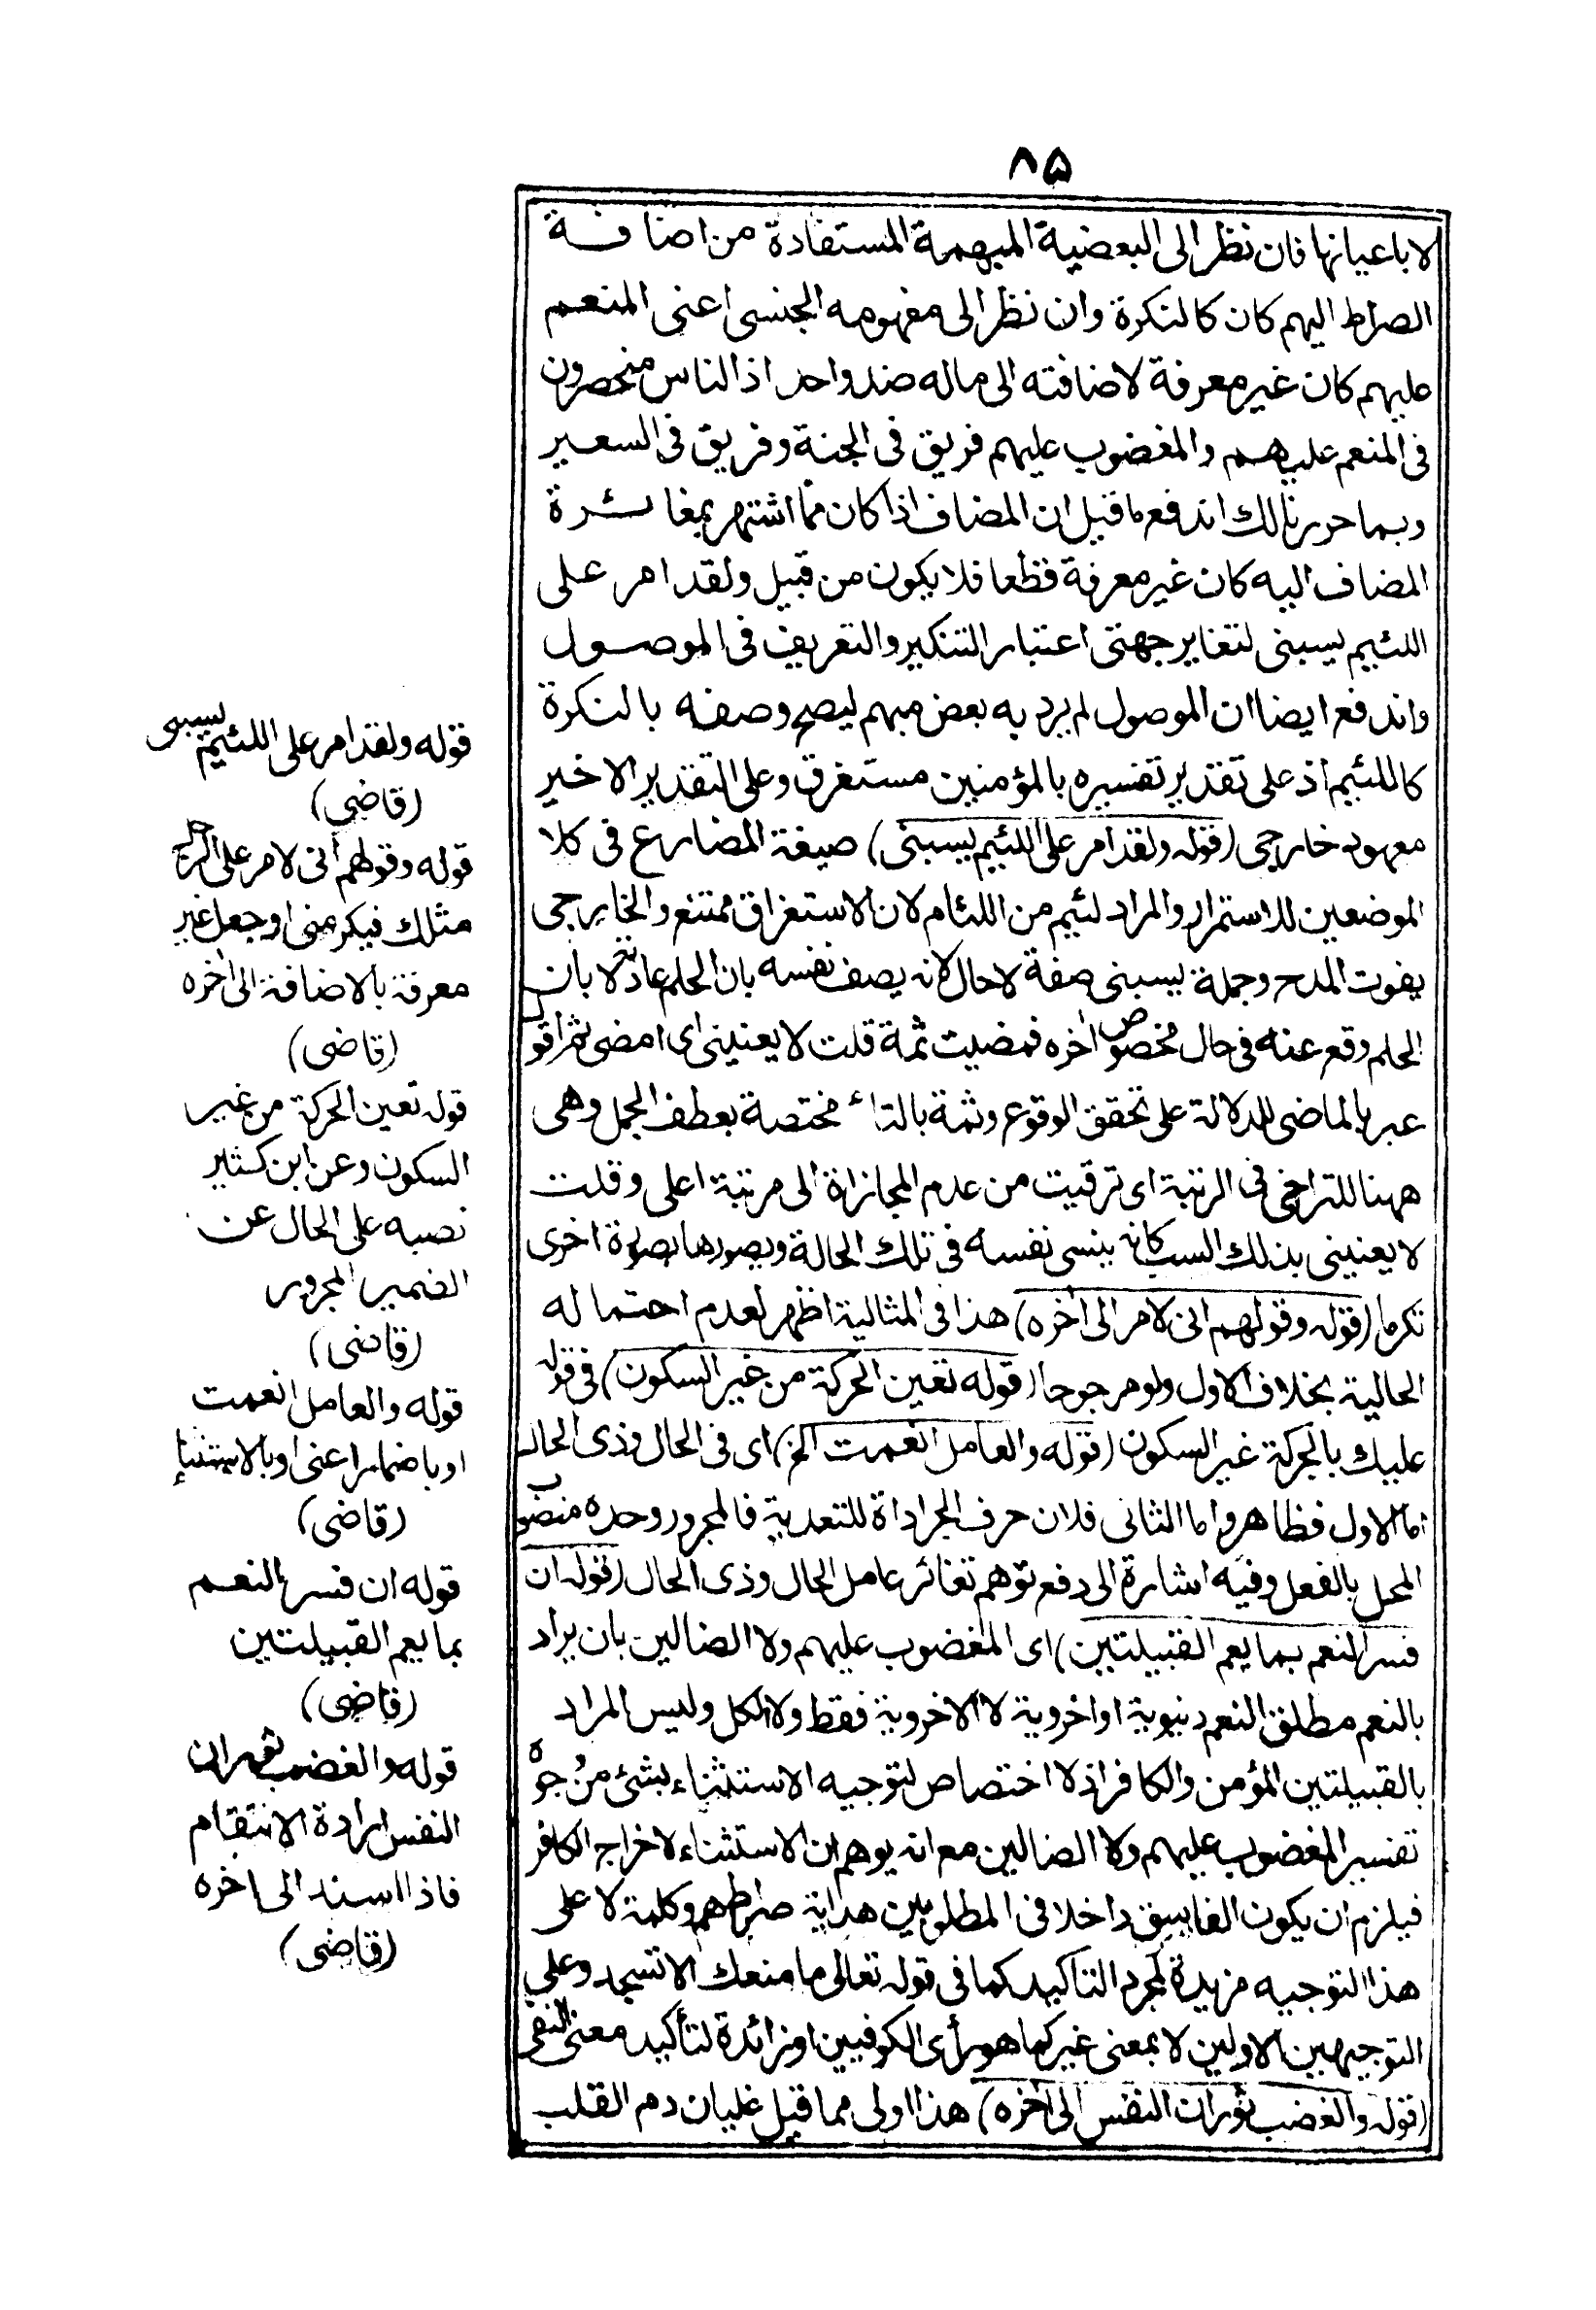 ٨٥
لا باعيانها فان نظر الى البعضية المبهمة المستفادة من اضافة
الصراط اليهم كان كالنكرة وان نظر الى مفهومه الجنسى اعنى المنعم
عليهم كان غير معرفة لاضافته الى ماله ضد واحد اذ الناس منحصرون
فى المنعم عليهم والمغضوب عليهم فريق فى الجنة وفريق فى السعير
وبما حررنا لك اندفع ما قيل ان المضاف اذا كان مما اشتهر بمغائرة
المضاف اليه كان غير معرفة قطعا فلا يكون من قبيل ولقد امر على
اللئيم يسبنى لتغاير جهتى اعتبار التنكير والتعريف فى الموصول
واندفع ايضا ان الموصول لم يرد به بعض مبهم ليصح وصفه بالنكرة
كاللئيم اذ على تقدير تفسيره بالمؤمنين مستغرق وعلى التقدير الاخير
معهود خارجى (قوله ولقد امر على اللئيم يسبنى) صيغة المضارع فى كلا
الموضعين للاستمرار والمراد لئيم من اللئام لان الاستغراق ممتنع والخارجى
يفوت المدح وجملة يسبنى صفة لا حال لانه يصف نفسه بان الحلم عادته لا بان
الحلم وقع عنه فى حال مخصوص اخره فمضيت ثمة قلت لا يعنينى اى امضى ثم اقول
عبر بالماضى للدلالة على تحقق الوقوع وثمة بالتاء مختصة بعطف الجمل وهى
ههنا للتراخى فى الرتبة اى ترقيت من عدم المجازاة الى مرتبة اعلى وقلت
لا يعنينى بذلك السب كانه ينسى نفسه فى تلك الحالة ويصورها بصورة اخرى
تكرما (قوله وقولهم انى لامر الى اخره) هذا فى المثالية اظهر لعدم احتماله
الحالية بخلاف الاول ولو مرجوحا (قوله تعين الحركة من غير السكون) فى قوله
عليك بالحركة غير السكون (قوله والعامل انعمت الخ) اى فى الحال وذى الحال
اما الاول فظاهر واما الثانى فلان حرف الجر اداة للتعدية فالمجرور وحده منصوب
المحل بالفعل وفيه اشارة الى دفع توهم تغائر عامل الحال وذى الحال (قوله ان
فسر النعم بما يعم القبيلتين) اى المغضوب عليهم ولا الضالين بان يراد
بالنعم مطلق النعم دنيوية او اخروية لا الاخروية فقط ولا الكل وليس المراد
بالقبيلتين المؤمن والكافر اذ لا اختصاص لتوجيه الاستثناء بشئ من وجوه
تفسير المغضوب عليهم ولا الضالين مع انه يوهم ان الاستثناء لاخراج الكافر
فيلزم ان يكون الفاسق داخلا فى المطلوبين هداية صراطهم وكلمة لا على
هذا التوجيه مزيدة لمجرد التاكيد كما فى قوله تعالى ما منعك الا تسجد وعلى
التوجيهين الاولين لا بمعنى غير كما هو رأى الكوفيين او زائدة لتأكيد معنى النفى
(قوله والغضب ثوران النفس الى اخره) هذا اولى مما قيل غليان دم القلب
قوله ولقد امر على اللئيم يسبنى
(قاضى)
قوله وقولهم انى لامر على الرجل
مثلك فيكرمنى او جعل غير
معرفة بالاضافة الى اخره
(قاضى)
قوله تعين الحركة من غير
السكون وعن ابن كثير
نصبه على الحال عن
الضمير المجرور
(قاضى)
قوله والعامل انعمت
او باضمار اعنى او بالاستثناء
(قاضى)
قوله ان فسر النعم
بما يعم القبيلتين
(قاضى)
قوله والغضب ثوران
النفس ارادة الانتقام
فاذا اسند الى اخره
(قاضى)